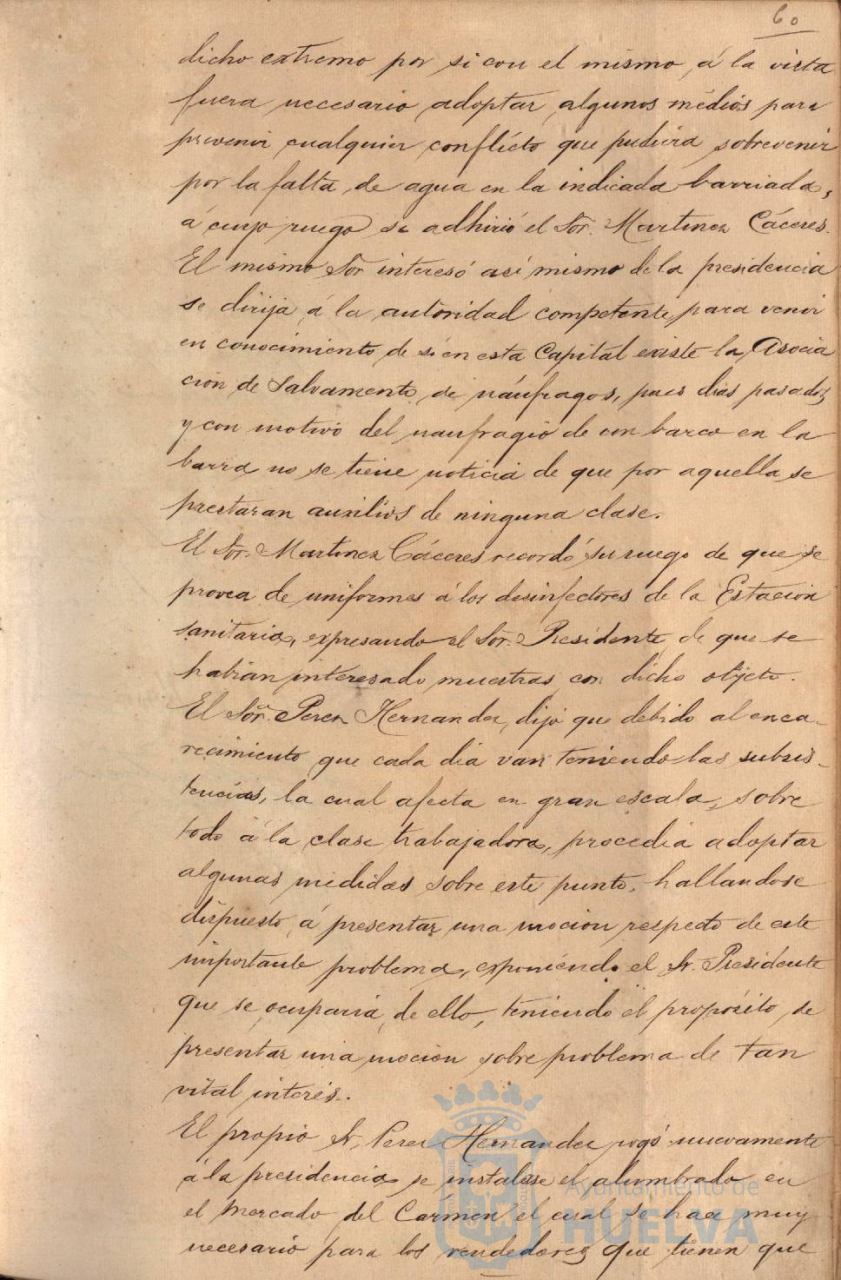 60
dicho extremo por si con el mismo, á la vista
fuera necesario adoptar algunos médios para
prevenir cualquier conflicto que pudiera sobrevenir
por la falta de agua en la indicada barriada,
á cuyo ruego se adhirió el Sor. Martinez Cáceres.
El mismo Sor interesó así mismo de la presidencia
se dirija á la autoridad competente para venir
en conocimiento de si en esta Capital existe la Asocia
ción de Salvamento de náufragos, pues dias pasados
y con motivo del naufragio de un barco en la
barra no se tiene noticia de que por aquella se
prestaran auxilios de ninguna clase.
El Sor. Martinez Cáceres recordó su ruego de que se
provea de uniformes á los desinfectores de la Estación
sanitaria, expresando el Sor. Presidente de que se
habian interesado muestras con dicho objeto.
El Sor. Perez Hernandez, dijo que debido al enca-
recimiento que cada dia van teniendo las subsis-
tencias, la cual afecta en gran escala, sobre
todo á la clase trabajadora, procedia adoptar
algunas medidas sobre este punto, hallandose
dispuesto á presentar una mocion respecto de este
importante problema, exponiendo el Sr. Presidente
que se ocuparia de ello, teniendo el propósito de
presentar una mocion sobre problema de tan
vital interés.
El propio Sr. Perez Hernandez rogó nuevamente
á la presidencia se instalase el alumbrado en
el mercado del Carmen el cual se hace muy
necesario para los vendedores que tienen que
Ayuntamiento de
HUELVA